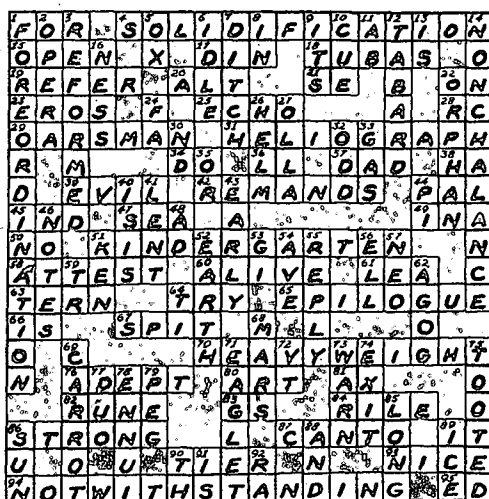 FOR SOLIDIFICATION
OPEN X DIN TUBAS O
REFER ALT SE B ON
EROS F ECHO A RC
OARSMAN HELIOGRAPH
R M DO LL DAD HA
D EVIL REMANDS PAL
IND SEA A INA
NO KINDERGARTEN N
ATTEST ALIVE LEA C
TERN TRY EPILOGUE
IS SPIT MEL O
O C HEAVYWEIGHT
N ADEPT ART AX O
RUNE GS RILE O
STRONG L CANTO IT
U O U TIER N NICE
NOTWITHSTANDING ED